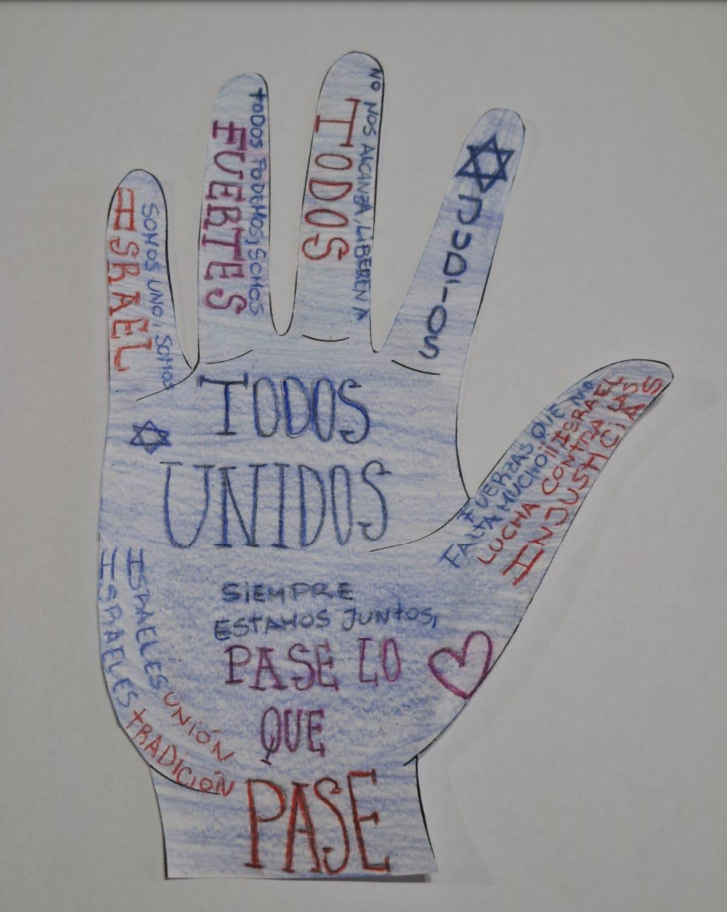 SOMOS UNO, SOMOS
ISRAEL
TODOS PODEMOS, SOMOS
FUERTES
NO NOS ALCANZA, LIBEREN A
TODOS
JUDIOS
FUERZAS QUE NO
FALTA MUCHO!! ISRAEL
LUCHA CONTRA LAS
INJUSTICIAS
TODOS
UNIDOS
SIEMPRE
ESTAMOS JUNTOS,
PASE LO
QUE
PASE
ISRAEL ES UNIÓN
ISRAEL ES TRADICIÓN